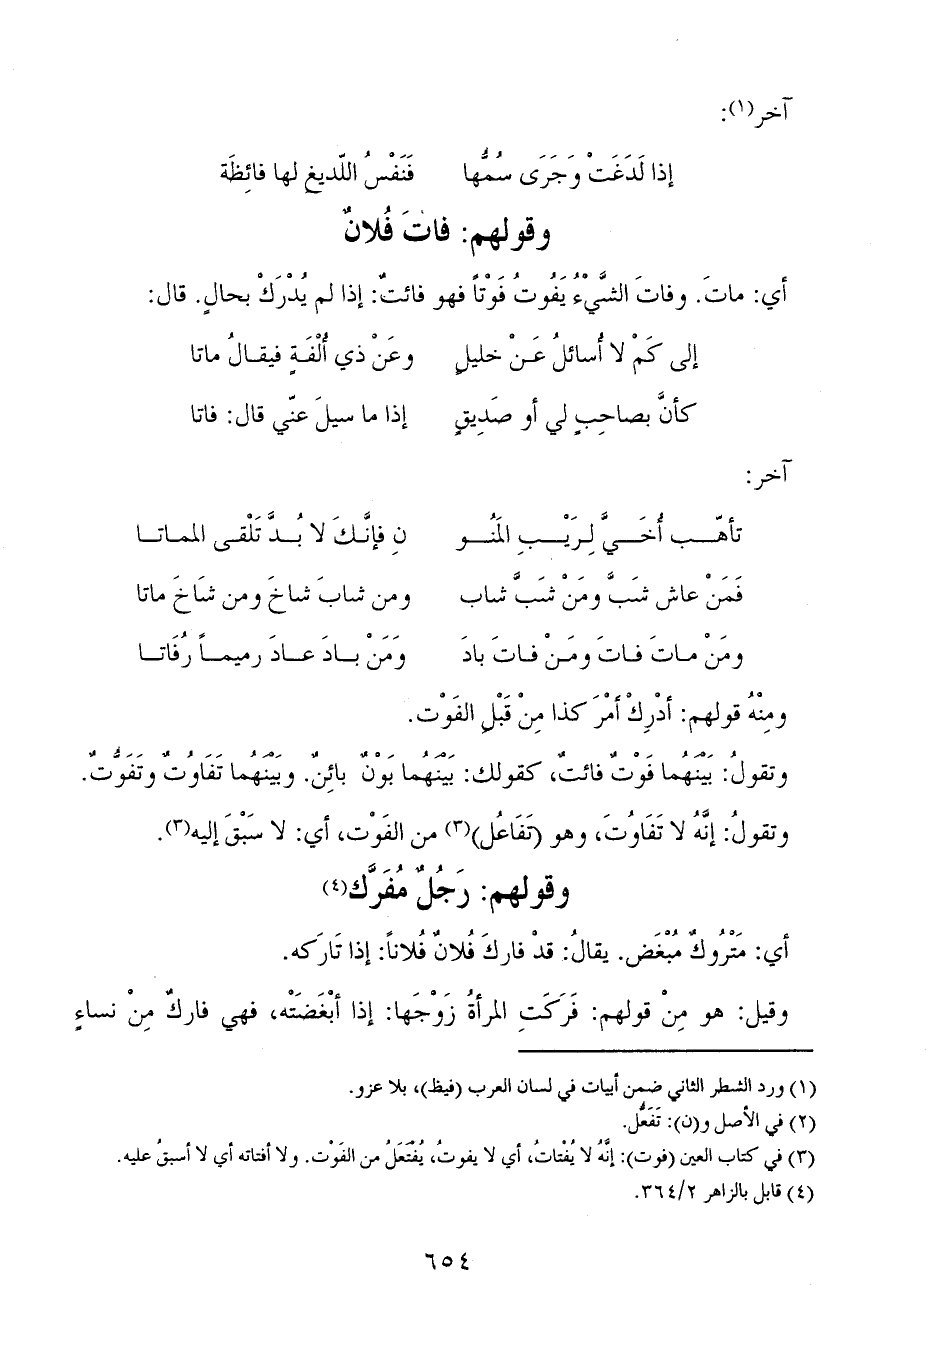 آخر(١):
إذا لَدَغَتْ وَجَرَى سُمُّها فَنَفْسُ اللّديغِ لها فائِظَة
وقولهم: فاتَ فُلانٌ
أي: ماتَ. وفاتَ الشَّيْءُ يَفُوتُ فَوْتاً فهو فائتٌ: إذا لم يُدْرَكْ بحالٍ. قال:
إلى كَمْ لا أُسائلُ عَنْ خليلٍ وعَنْ ذي أُلْفَةٍ فيقالُ ماتا
كأنَّ بصاحِبٍ لي أو صَدِيقٍ إذا ما سيلَ عنّي قال: فاتا
آخر:
تأهّب أُخَيَّ لِرَيْبِ المَنُو نِ فإنَّكَ لا بُدَّ تَلْقى المماتا
فَمَنْ عاش شَبَّ ومَنْ شَبَّ شاب ومن شابَ شاخَ ومن شَاخَ ماتا
ومَنْ ماتَ فاتَ ومَنْ فاتَ بادَ وَمَنْ بادَ عادَ رميماً رُفَاتا
ومِنْهُ قولهم: أدْرِكْ أمْرَ كذا مِنْ قَبْلِ الفَوْت.
وتقولُ: بَيْنَهُما فَوْتٌ فائتٌ، كقولك: بَيْنَهُما بَوْنٌ بائنٌ. وبَيْنَهُما تَفَاوُتٌ وتَفَوُّتٌ.
وتقولُ: إنَّهُ لا تَفَاوُتَ، وهو (تَفَاعُل)(٣) من الفَوْت، أي: لا سَبْقَ إليه(٣).
وقولهم: رَجُلٌ مُفَرَّك(٤)
أي: مَتْرُوكٌ مُبْغَض. يقالُ: قدْ فاركَ فُلانٌ فُلاناً: إذا تَارَكه.
وقيل: هو مِنْ قولهم: فَرَكَتِ المرأةُ زَوْجَها: إذا أبْغَضَتْه، فهي فاركٌ مِنْ نساءٍ
(١) ورد الشطر الثاني ضمن أبيات في لسان العرب (فيظ)، بلا عزو.
(٢) في الأصل و(ن): تَفَعُّل.
(٣) في كتاب العين (فوت): إنَّهُ لا يُفْتاتُ، أي لا يفوتُ، يُفْتَعَلُ من الفَوْت. ولا أفتاته أي لا أسبقُ عليه.
(٤) قابل بالزاهر ٣٦٤/٢.
٦٥٤